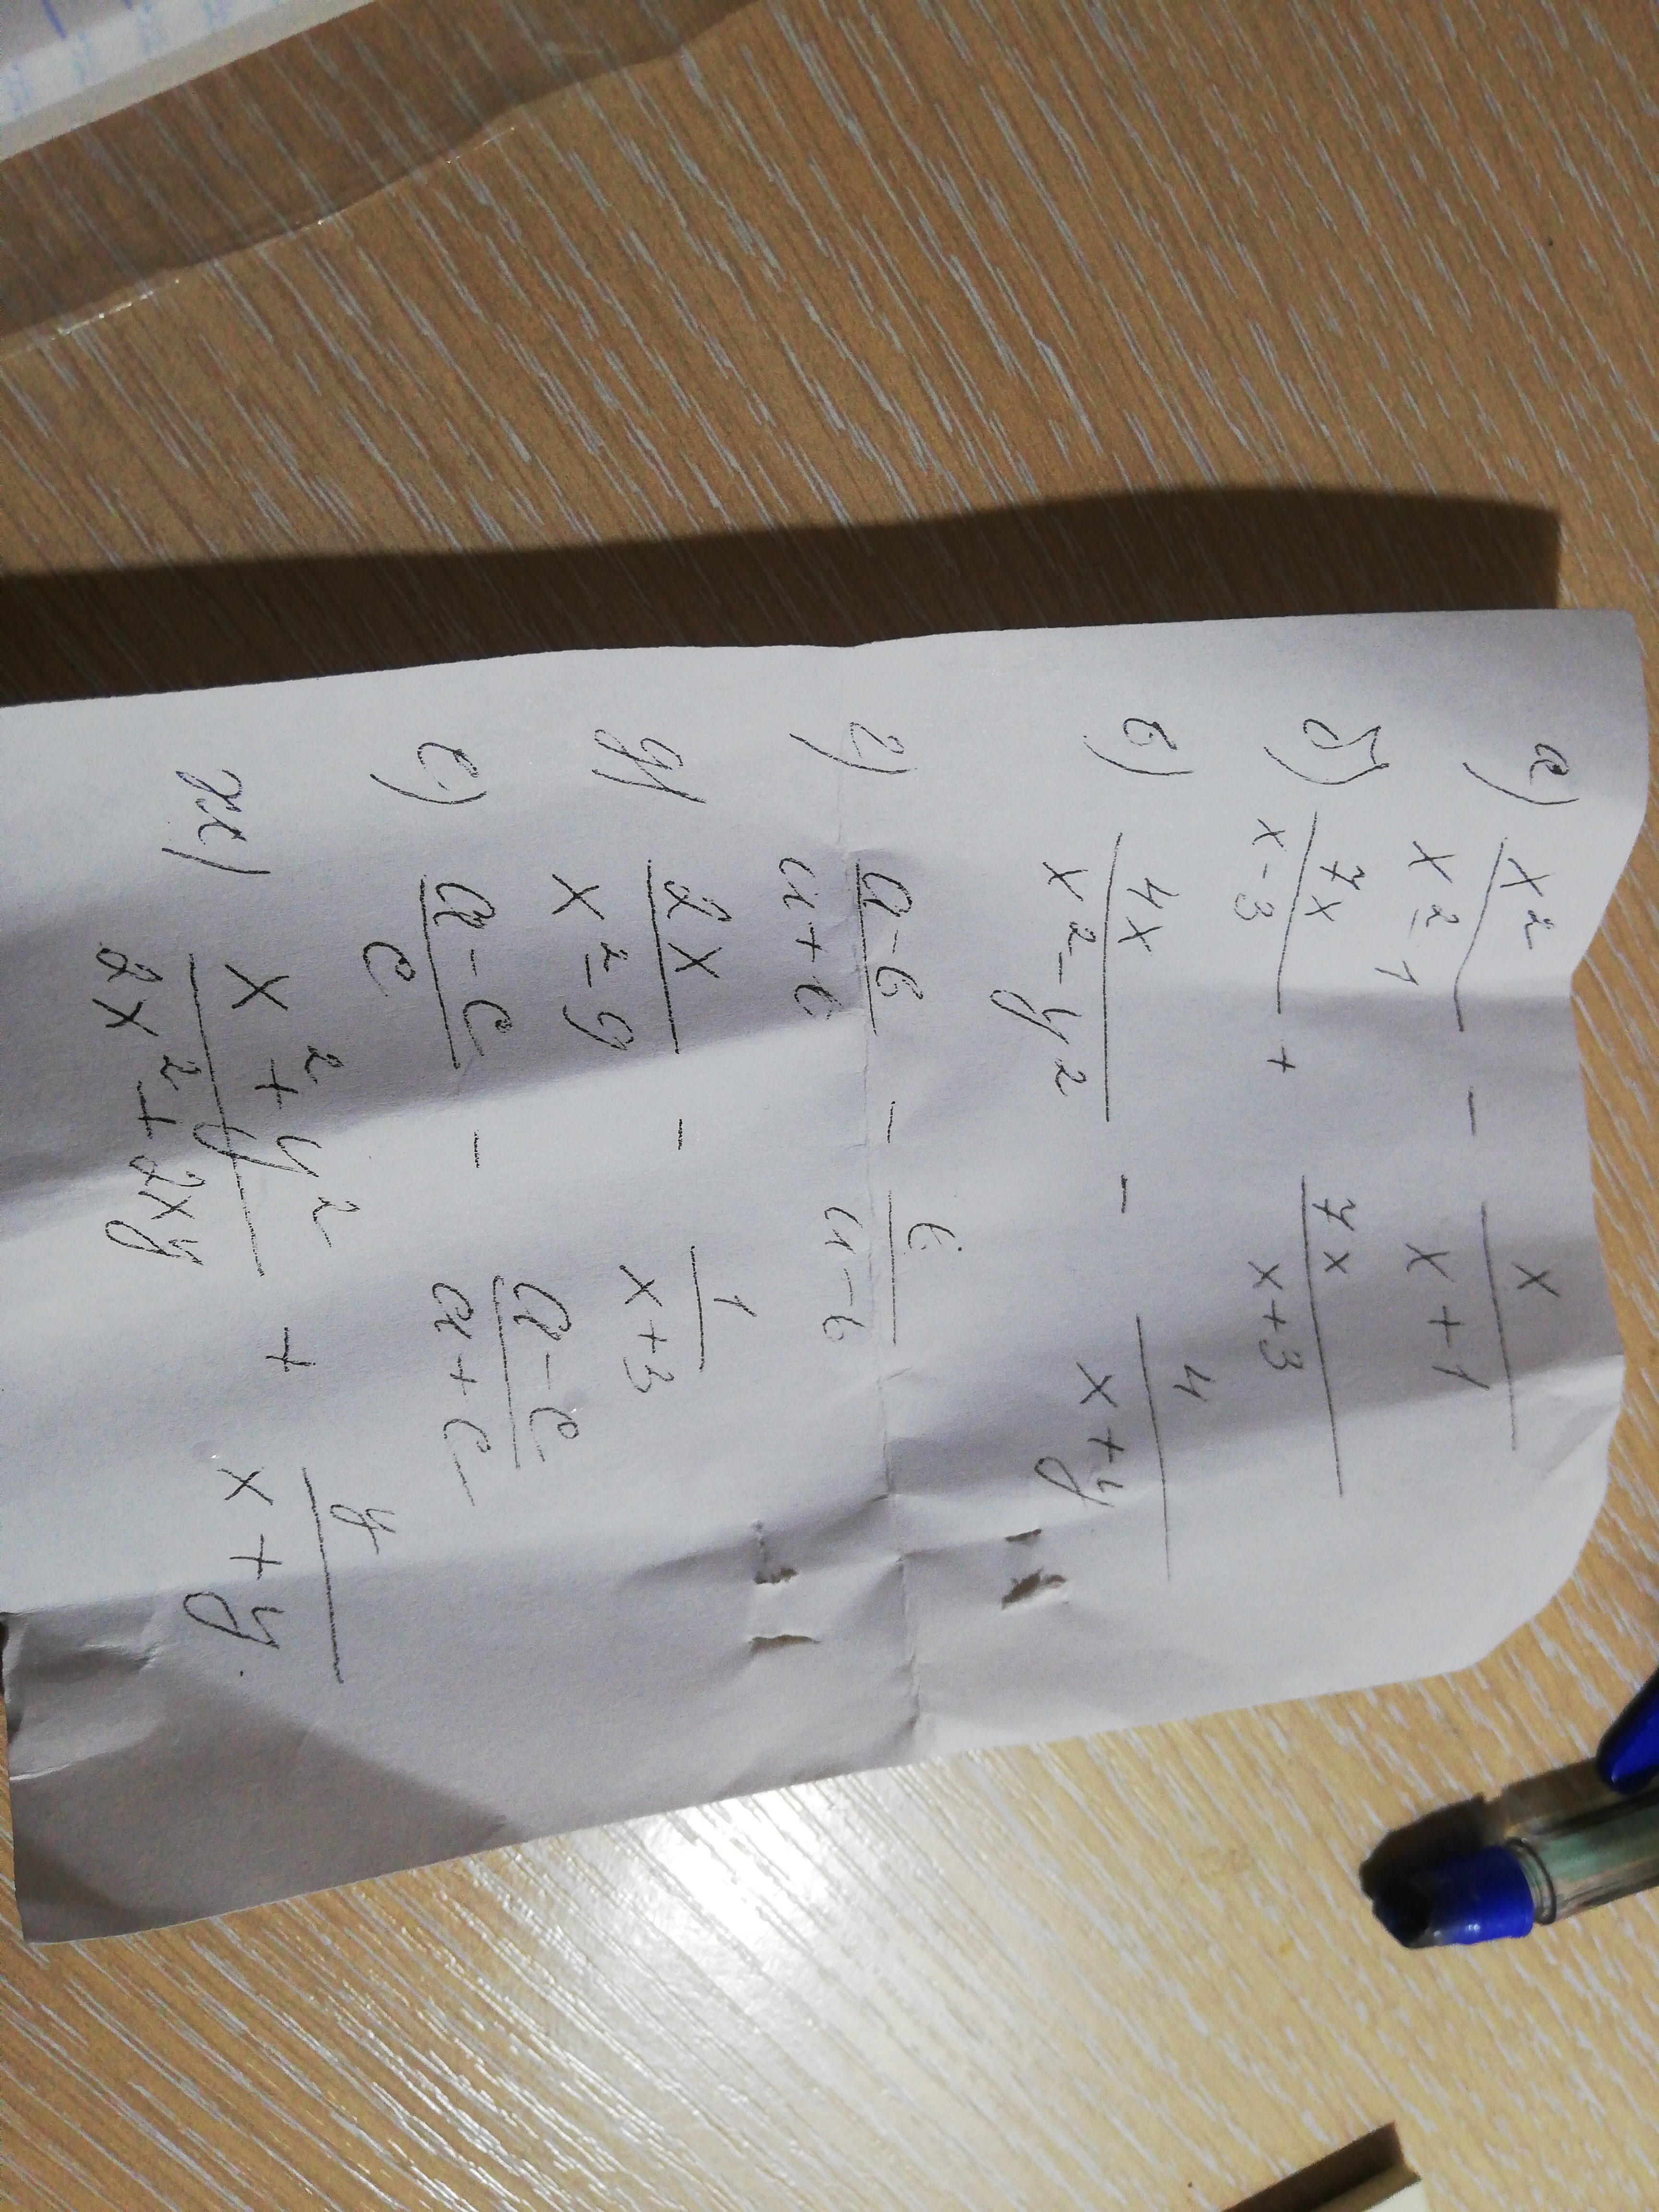 а) x²/(x²-1) - x/(x+1)
б) 7x/(x-3) + 7x/(x+3)
в) 4x/(x²-y²) - 4/(x+y)
г) (a-b)/(a+b) - b/(a-b)
д) 2x/(x²-9) - 1/(x+3)
е) (a-c)/c - (a-c)/(a+c)
ж) (x²+y²)/(2x²+2xy) + y/(x+y).